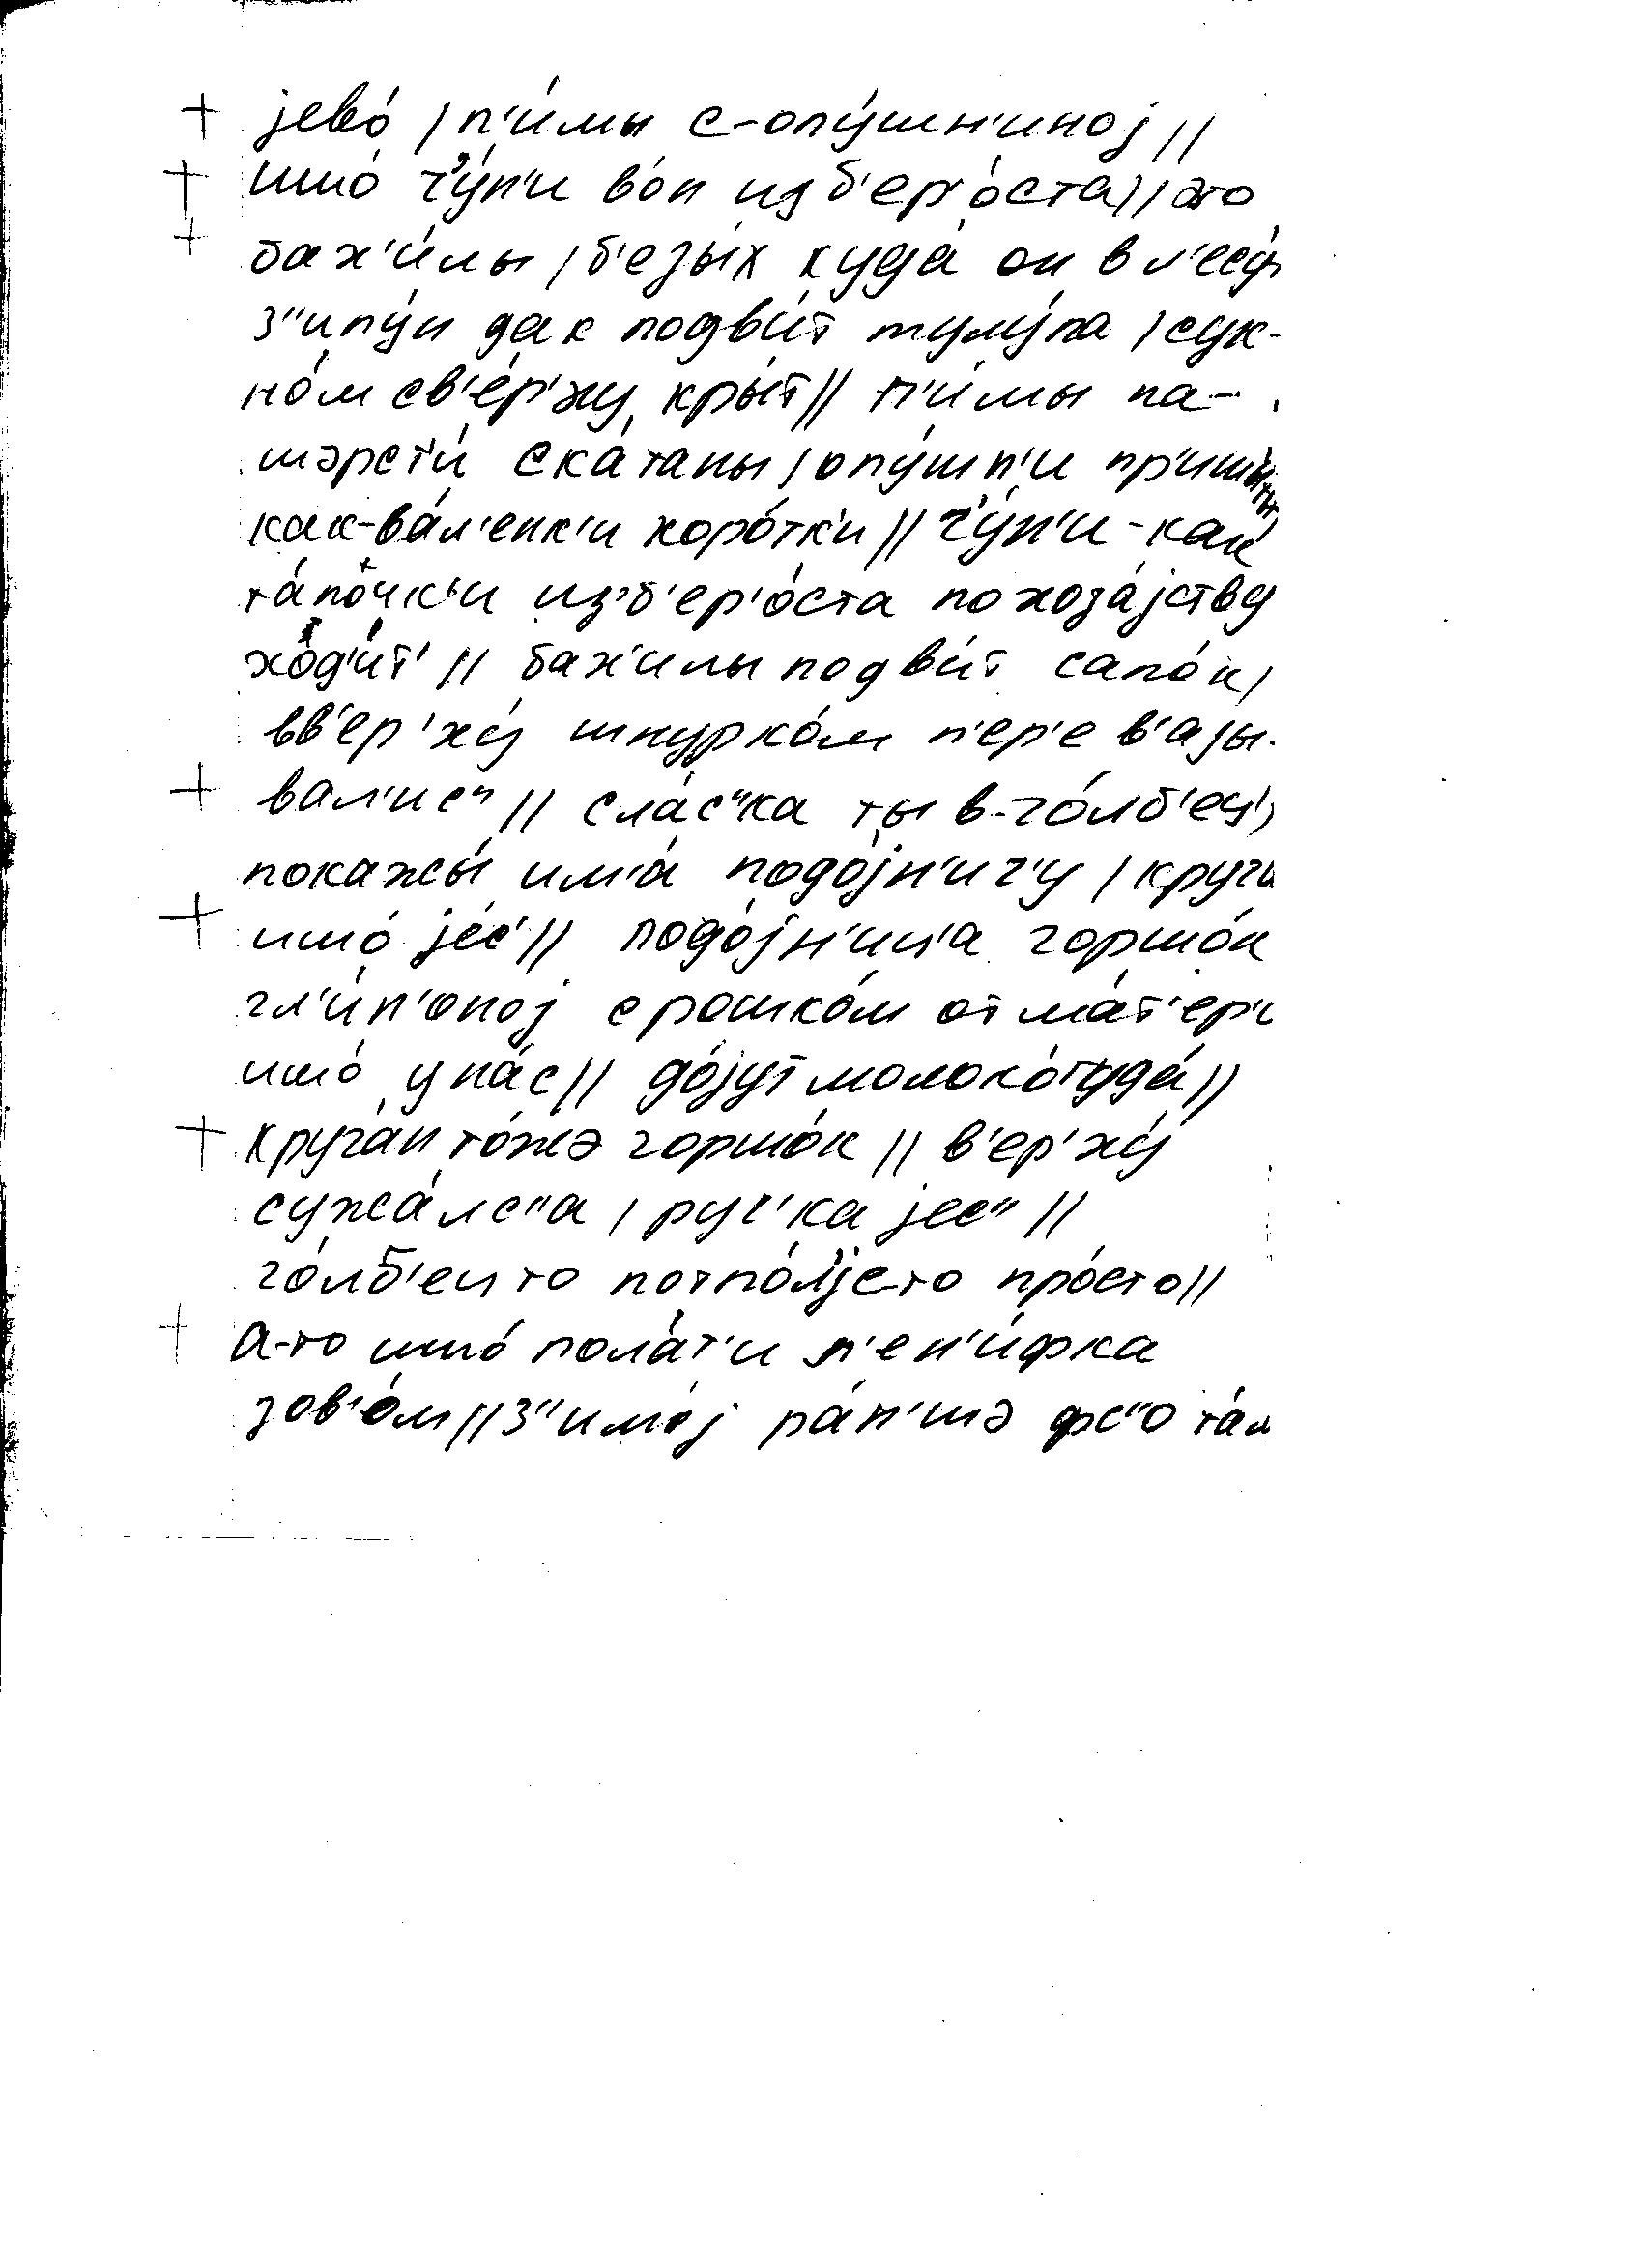 + јево́ / п'и́мы с-опу́шн'иној //
+ ишо́ ч'у́н'и во́н из б'ер'о́ста // это
+ бах'и́лы / б'езы́х куда́ он в л'есу́
з"ипу́н дак подви́т тулу́па / сук-
но́м св'е́р'ху кры́т // п'и́мы па-
шэрст'и́ ска́таны / опу́шн'и пр'ишы́ты
как-ва́л'енк'и коро́тк'и // ч'у́н'и - как
та́почк'и из'б'ер'о́ста по хоз'а́јству
ход'и́т' // бах'илы подви́т сапо́к /
вв'ер'ху́ шнурко́м п'ер'е в'азы-
+ вал'ис" // сла́с"ка ты в-го́лб'ец'
покажы́ им'а́ подо́јн'ич'у /
+ ишо́ је́с' // подо́јн'иц'а горшо́к
гл'и́н'оној с рошко́м от ма́т'ер'и
ишо́ у на́с // до́јут молоко́ туда́ //
+ круга́н то́жэ горшо́к // в'ер'ху́
сужа́лс"а / руч'ка јес" //
го́лб'ец то потпо́л'је-то про́сто //
+ А-то ишо́ пола́т'и л'ен'и́фка
зов'о́м // з"имо́ј ра́н'шэ фс"о та́м